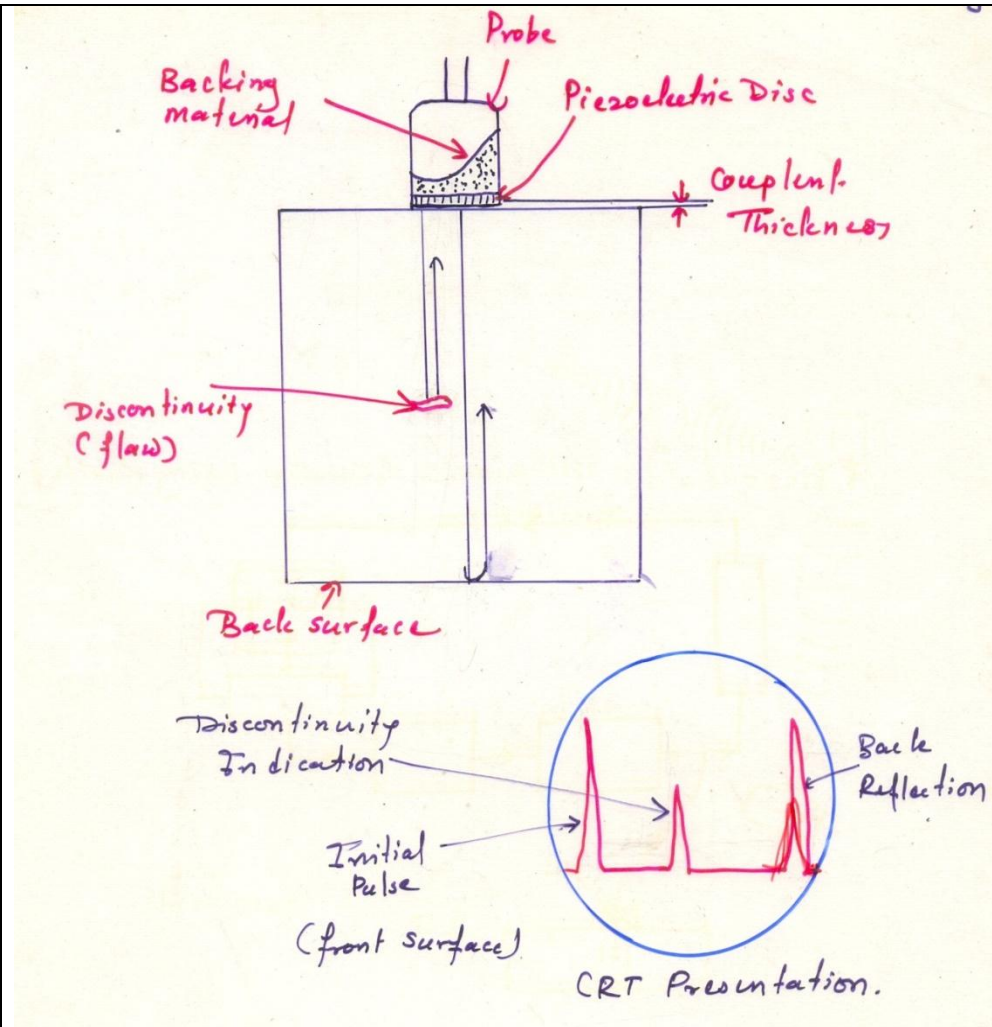 Probe
Backing
material
Piezoelectric Disc
Couplent
Thickness
Discontinuity
(flaw)
Back surface
Discontinuity
Indication
Back
Reflection
Initial
Pulse
(front surface)
CRT Presentation.